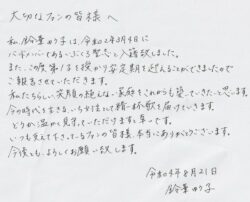 大切なファンの皆様へ
私、鈴華ゆう子は、令和2年3月4日に
入籍致しました。
また、この度第1子を授かり安定期を迎えることができましたので
ご報告させていただきます。
私たちらしい笑顔の絶えない家庭をこれからも築いていきたいと思います。
今の時代を生きる、いち女性として精一杯歌を届けていきます。
どうか温かく見守っていただけますと幸いです。
いつも支えて下さっているファンの皆様、本当にありがとうございます。
今後とも、よろしくお願い致します。
令和4年8月21日
鈴華ゆう子